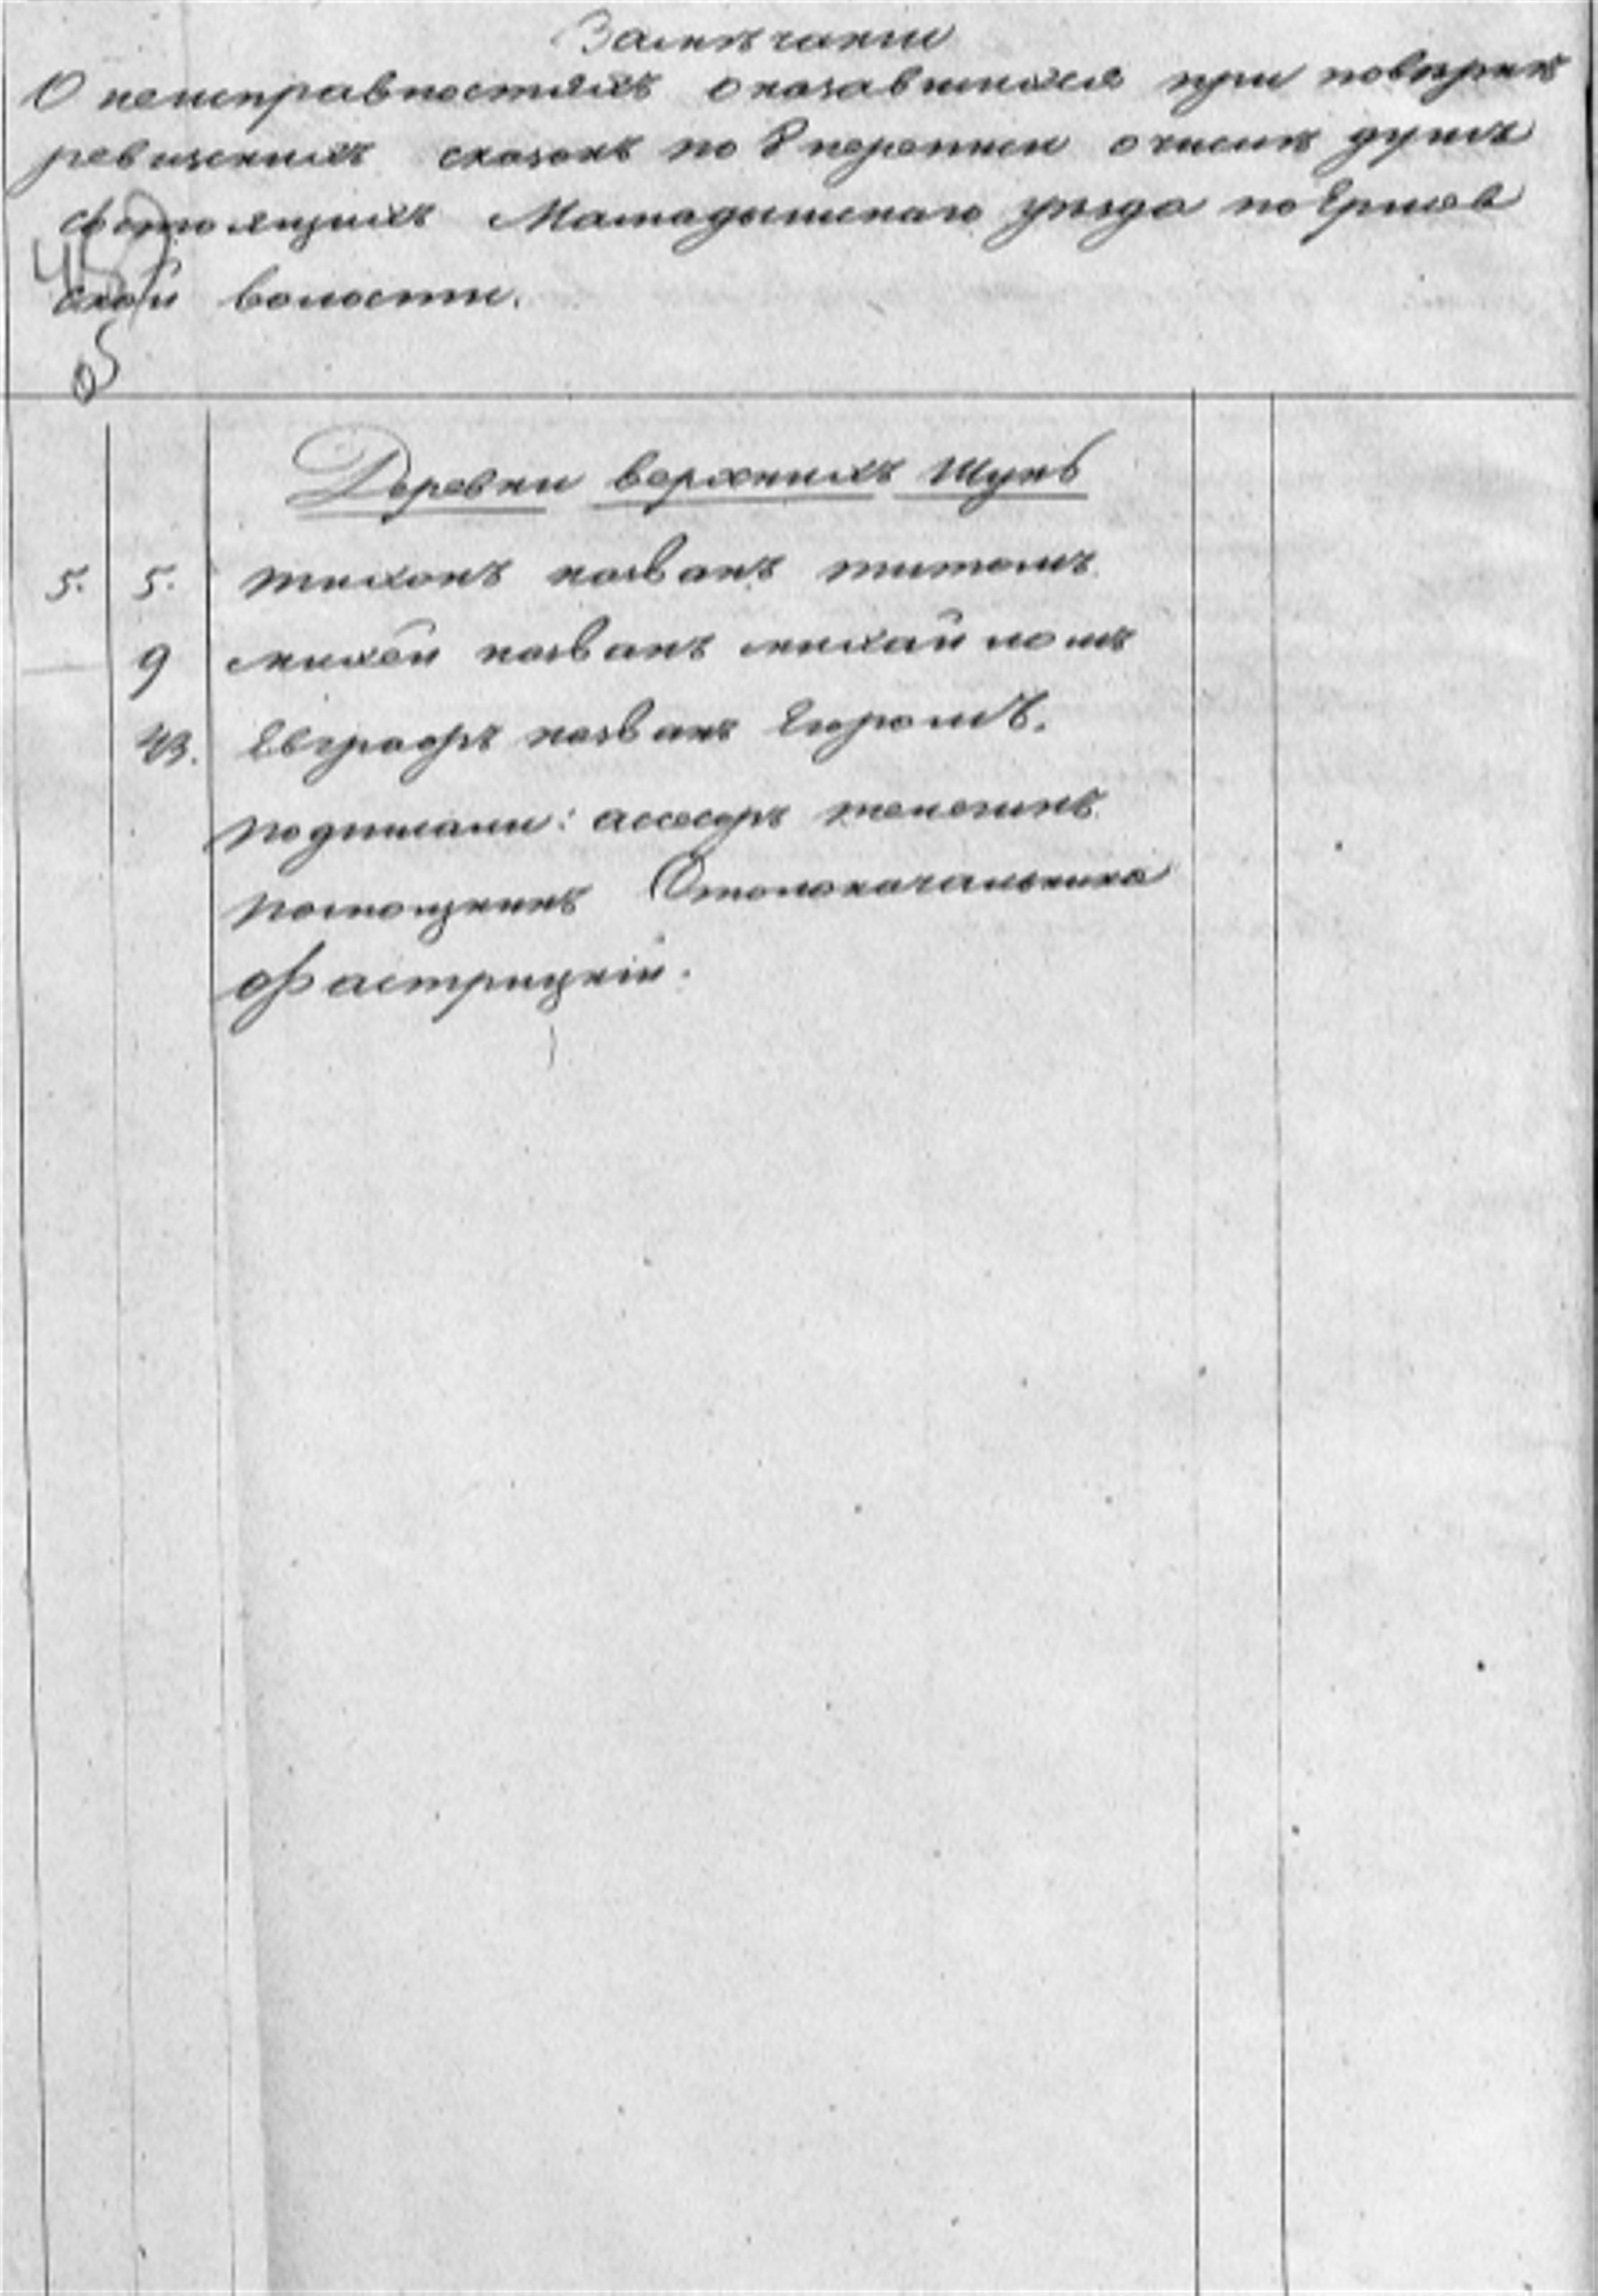 Замѣчании
О неисправностяхъ оказавшихся при повѣркѣ
ревизскихъ сказокъ по 8 переписи о числѣ душъ
состоящихъ Мамадышскаго уѣзда по Ершов
ской волости.
Деревни верхнихъ Шунь
5. 5. тихонъ названъ титомъ
9 михей названъ михайломъ
43. Евграфъ названъ Егоромъ.
подписали: ассесоръ телегинъ
помощникъ Столоначальника
Фастрицкiй.